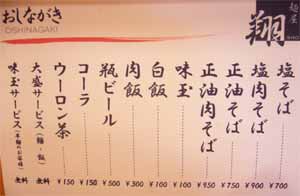 おしながき
OSHINAGAKI
麺屋
翔
塩そば ¥700
塩肉そば ¥900
正油そば ¥750
正油肉そば ¥950
味玉 ¥100
白飯 ¥100
肉飯 ¥300
瓶ビール ¥500
コーラ ¥150
ウーロン茶 ¥150
大盛サービス(麺・飯) 無料
味玉サービス(半麺のお客様) 無料